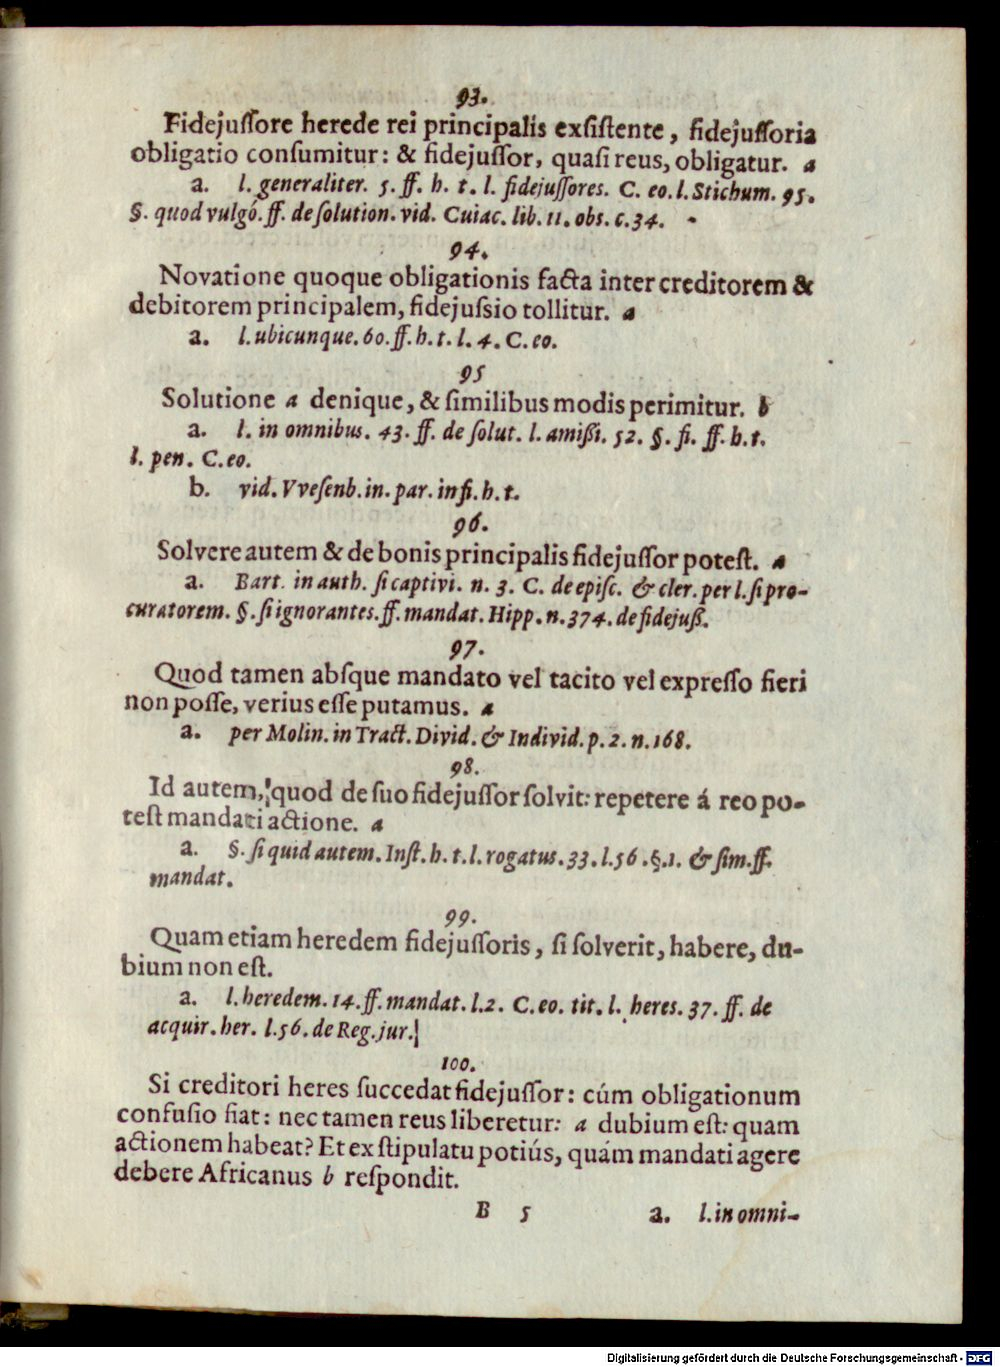 93.
Fidejuſſore herede rei principalis exſiſtente, fidejuſſoria
obligatio conſumitur: & fidejuſſor, quaſi reus, obligatur. a
a. l. generaliter. 5. ff. h. t. l. fidejuſſores. C. eo. l. Stichum. 95.
§. quod vulgò. ff. de ſolution. vid. Cuiac. lib. 11. obs. c. 34.
94.
Novatione quoque obligationis facta inter creditorem &
debitorem principalem, fidejuſsio tollitur. a
a. l. ubicunque. 60. ff. h. t. l. 4. C. eo.
95
Solutione a denique, & ſimilibus modis perimitur. b
a. l. in omnibus. 43. ff. de ſolut. l. amißi. 52. §. fi. ff. h. t.
l. pen. C. eo.
b. vid. Vveſenb. in. par. in fi. h. t.
96.
Solvere autem & de bonis principalis fidejuſſor poteſt. a
a. Bart. in auth. ſi captivi. n. 3. C. de epiſc. & cler. per l. ſi pro-
curatorem. §. ſi ignorantes. ff. mandat. Hipp. n. 374. de fidejuß.
97.
Quod tamen abſque mandato vel tacito vel expreſſo fieri
non poſſe, verius eſſe putamus. a
a. per Molin. in Tract. Divid. & Individ. p. 2. n. 168.
98.
Id autem, quod de ſuo fidejuſſor ſolvit: repetere á reo po-
teſt mandati actione. a
a. §. ſi quid autem. Inſt. h. t. l. rogatus. 33. l. 56. §. 1. & ſim. ff.
mandat.
99.
Quam etiam heredem fidejuſſoris, ſi ſolverit, habere, du-
bium non eſt.
a. l. heredem. 14. ff. mandat. l. 2. C. eo. tit. l. heres. 37. ff. de
acquir. her. l. 56. de Reg. jur.
100.
Si creditori heres ſuccedat fidejuſſor: cúm obligationum
confuſio fiat: nec tamen reus liberetur: a dubium eſt: quam
actionem habeat? Et ex ſtipulatu potiús, quám mandati agere
debere Africanus b reſpondit.
B 5 a. l. in omni-
Digitalisierung gefördert durch die Deutsche Forschungsgemeinschaft - DFG